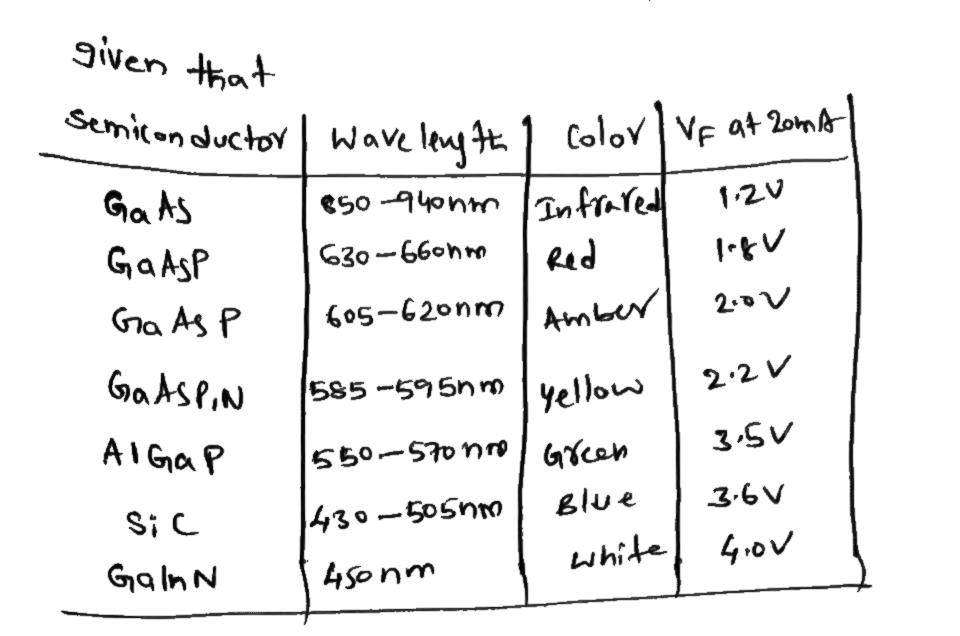 given that
Semiconductor Wavelength Color VF at 20mA
GaAs 850-940nm Infrared 1.2V
GaAsP 630-660nm Red 1.8V
GaAsP 605-620nm Amber 2.0V
GaAsP,N 585-595nm yellow 2.2V
AlGaP 550-570nm Green 3.5V
SiC 430-505nm Blue 3.6V
GaInN 450nm white 4.0V